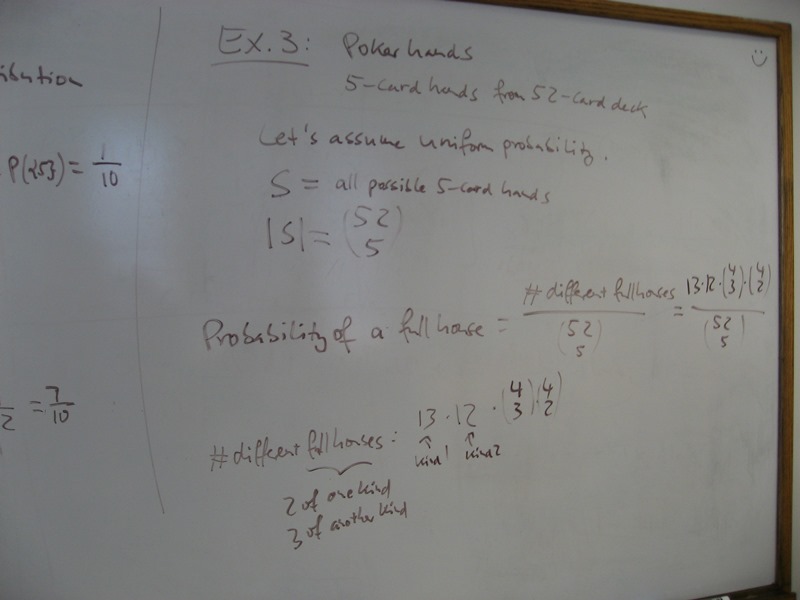 ibution
P({2,5}) = 1/10
/2 = 7/10
Ex. 3: Poker hands
5-card hands from 52-card deck
Let's assume uniform probability.
S = all possible 5-card hands
|S| = (52 5)
Probability of a full house = # different full houses / (52 5) = 13·12·(4 3)·(4 2) / (52 5)
# different full houses: 13 · 12 · (4 3)(4 2)
kind 1 kind 2
2 of one kind
3 of another kind